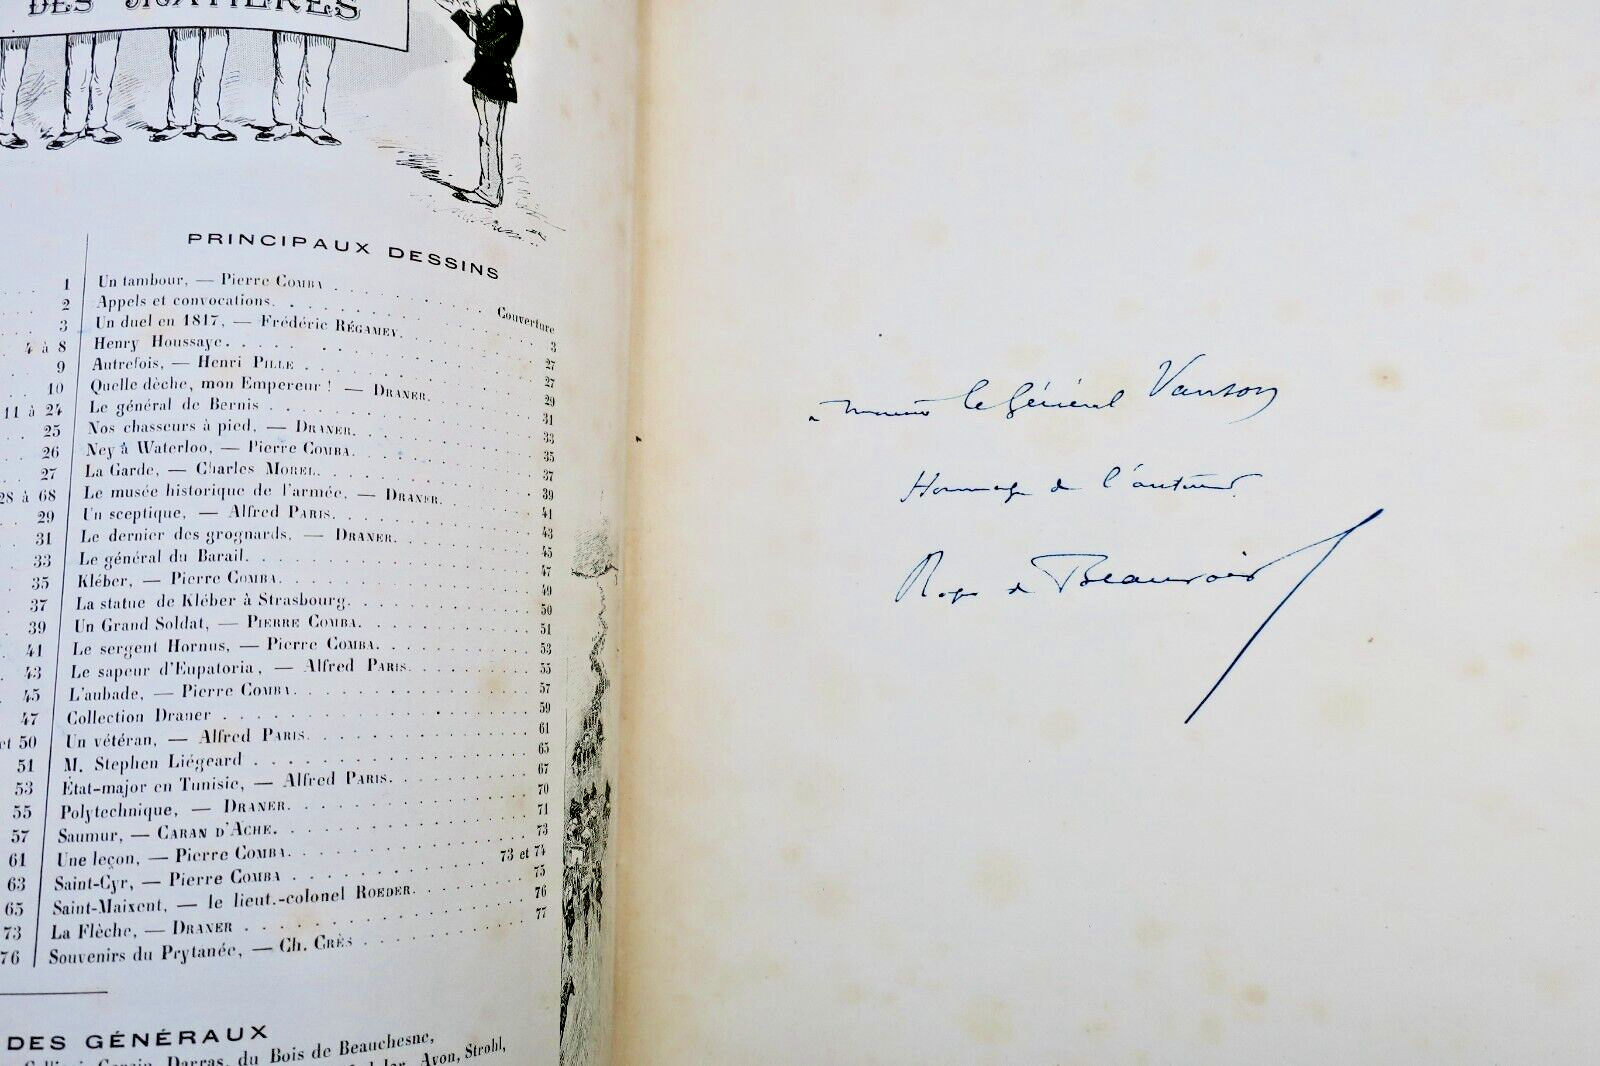 DES MATIÈRES
1
2
3
4 à 8
9
10
11 à 24
25
26
27
28 à 68
29
31
33
35
37
39
41
43
45
47
et 50
51
53
55
57
61
63
65
73
76
PRINCIPAUX DESSINS
Un tambour, — Pierre COMBA . . . Couverture
Appels et convocations. . . . 3
Un duel en 1817, — Frédéric RÉGAMEY. . . . 27
Henry Houssaye. . . . 27
Autrefois, — Henri PILLE . . . 29
Quelle dèche, mon Empereur ! — DRANER. . . . 31
Le général de Bernis . . . 33
Nos chasseurs à pied, — DRANER. . . . 35
Ney à Waterloo, — Pierre COMBA. . . . 37
La Garde, — Charles MOREL. . . . 39
Le musée historique de l'armée, — DRANER. . . . 41
Un sceptique, — Alfred PARIS. . . . 43
Le dernier des grognards, — DRANER. . . . 45
Le général du Barail. . . . 47
Kléber, — Pierre COMBA. . . . 49
La statue de Kléber à Strasbourg. . . . 50
Un Grand Soldat, — PIERRE COMBA. . . . 51
Le sergent Hornus, — Pierre COMBA. . . . 53
Le sapeur d'Eupatoria, — Alfred PARIS. . . . 55
L'aubade, — Pierre COMBA. . . . 57
Collection Draner . . . 59
Un vétéran, — Alfred PARIS. . . . 61
M. Stephen Liégeard . . . 65
État-major en Tunisie, — Alfred PARIS. . . . 67
Polytechnique, — DRANER. . . . 70
Saumur, — CARAN D'ACHE. . . . 71
Une leçon, — Pierre COMBA. . . . 73
Saint-Cyr, — Pierre COMBA . . . 73 et 74
Saint-Maixent, — le lieut.-colonel ROEDER. . . . 75
La Flèche, — DRANER . . . 76
Souvenirs du Prytanée, — Ch. CRÈS . . . 77
DES GÉNÉRAUX
Darras, du Bois de Beauchesne,
Avon, Strohl,
le Général Vanson
Hommage de l'auteur
Roger de Beauvoir